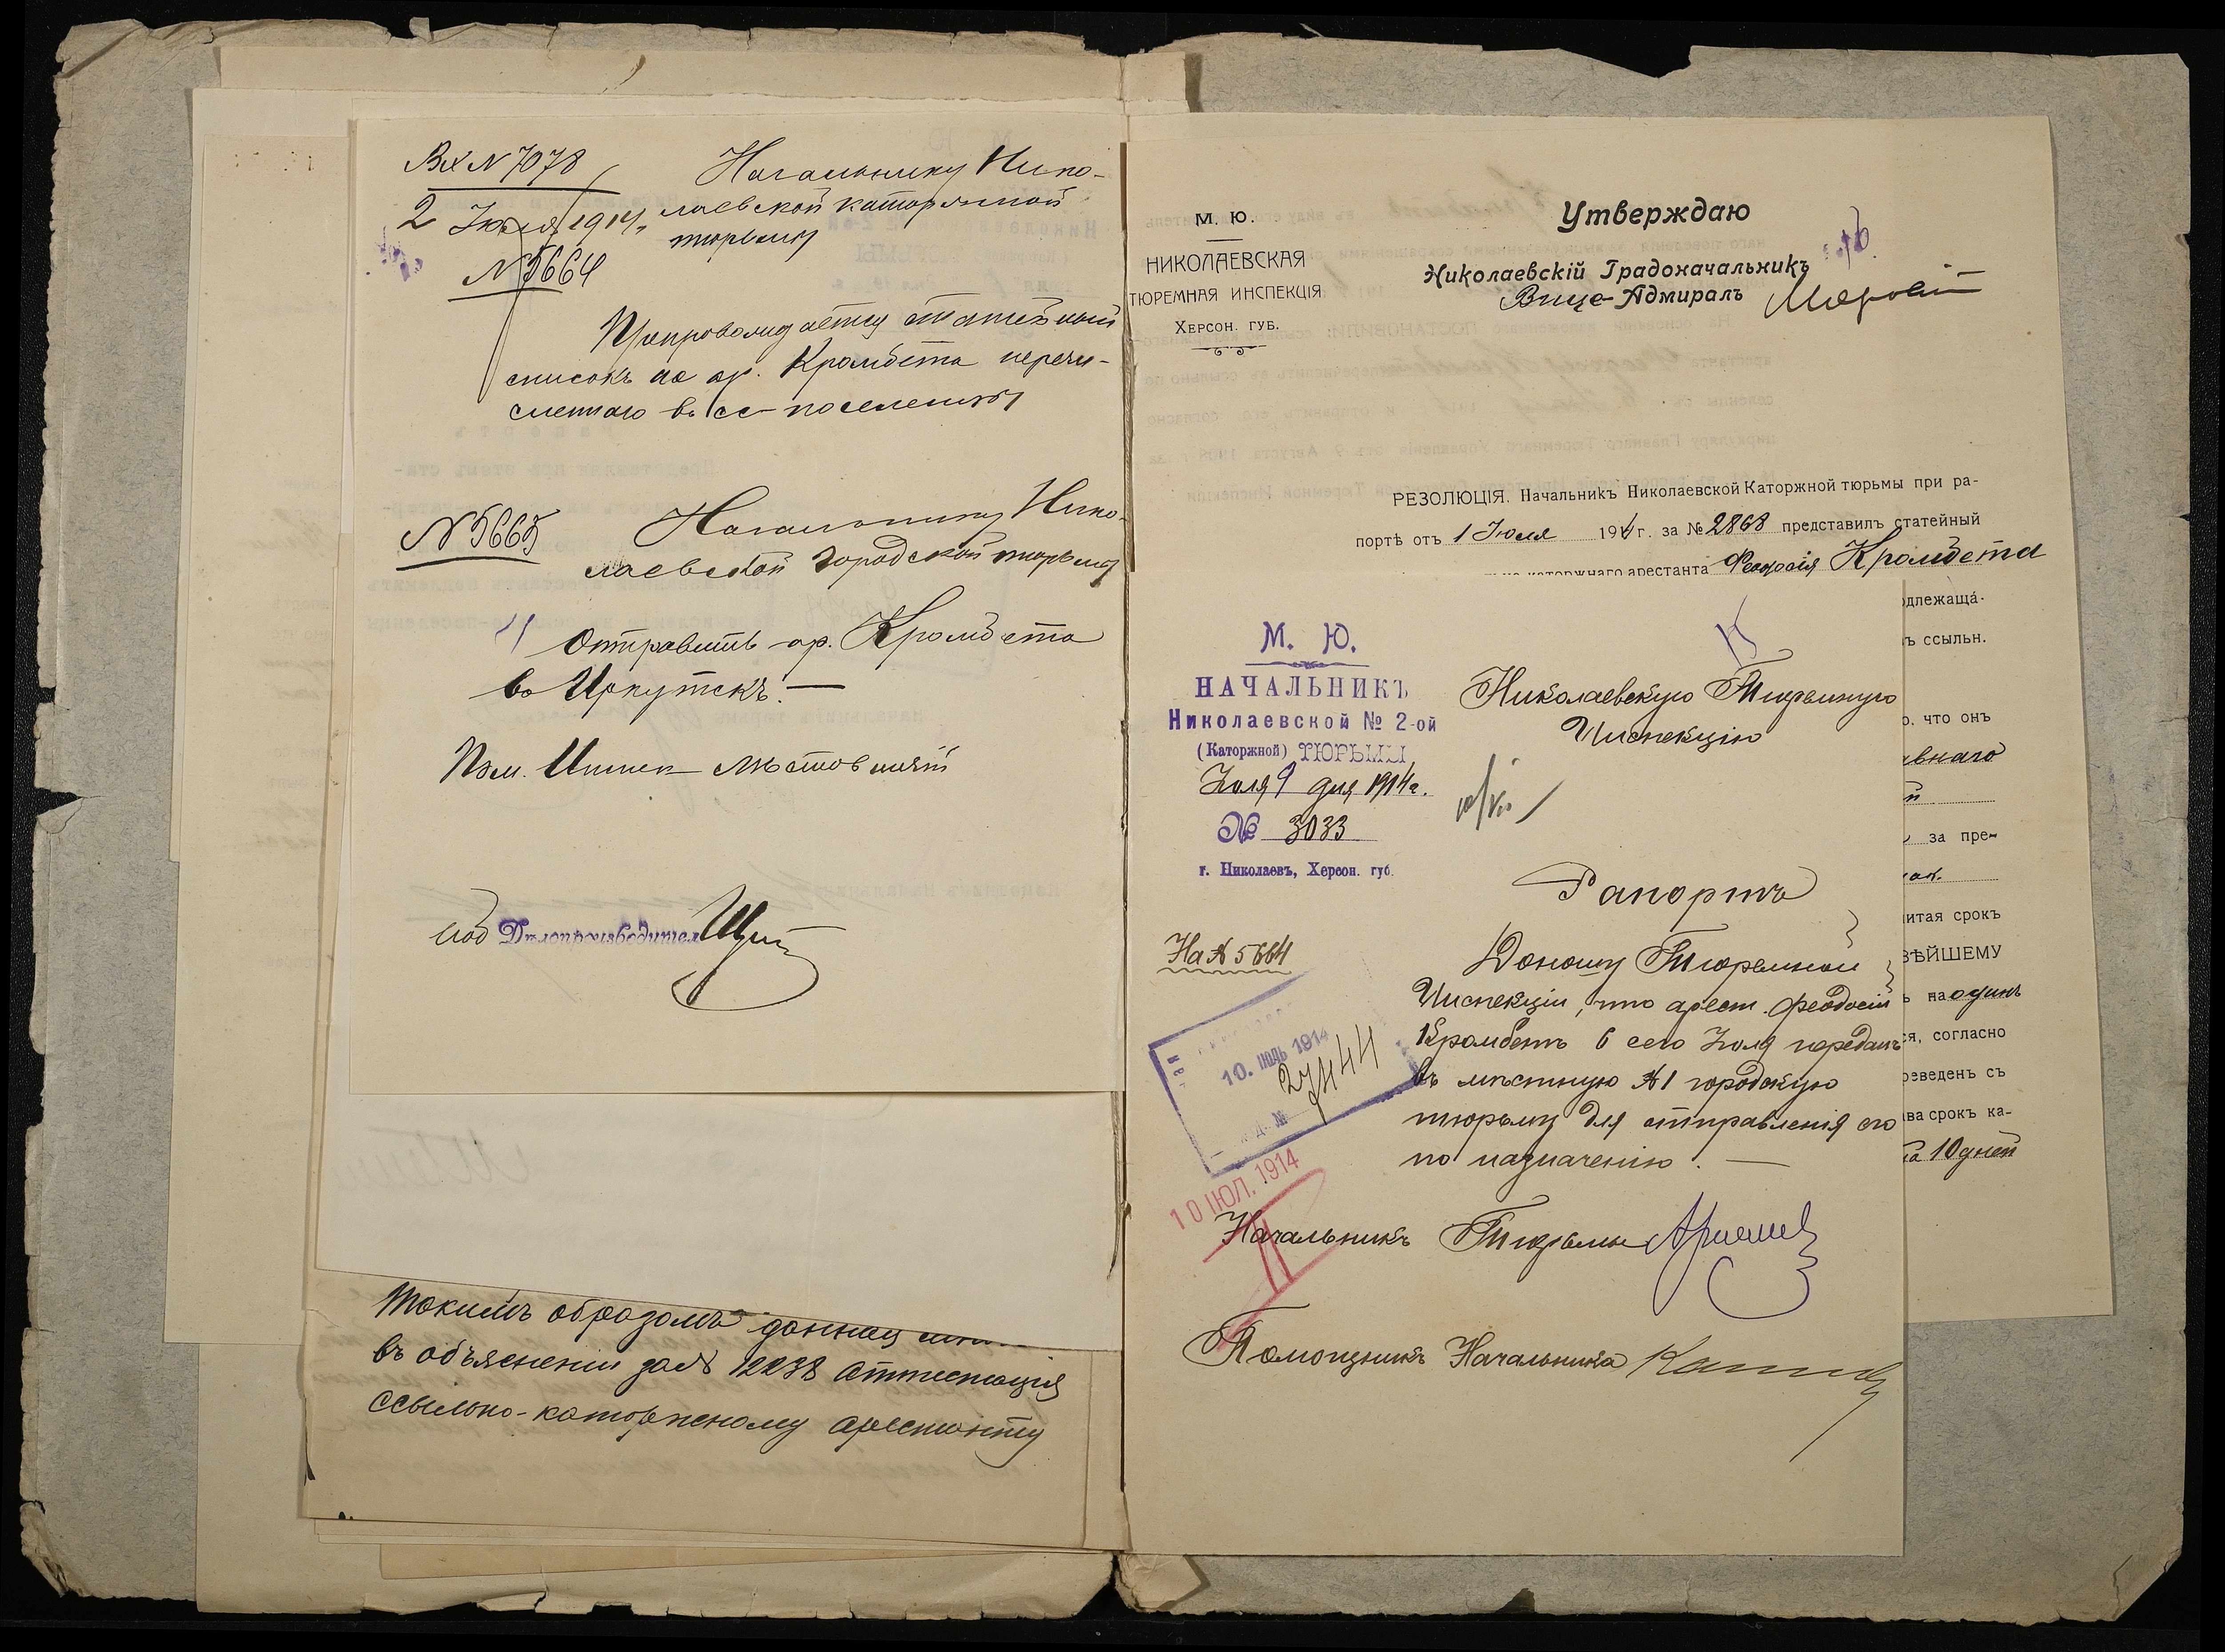 Вх N 7078
2 Июля 1914 г.
N 5664
Начальнику Нико-
лаевской каторжной
тюрьмы
Препровождается статейный
списокъ на ар. Кромбета перечи-
сленнаго въ сс-поселенцы
N 5665
Начальнику Нико-
лаевской городской тюрьмы
Отправить ар. Кромбета
въ Иркутскъ. —
Пом. Инспек
Дѣлопроизводител
Такимъ образомъ
въ объясненіи за N 12238 аттестація
ссыльно-каторжному арестанту
М. Ю.
НИКОЛАЕВСКАЯ
ТЮРЕМНАЯ ИНСПЕКЦІЯ
ХЕРСОН. ГУБ.
Утверждаю
Николаевскій Градоначальникъ
Вице-Адмиралъ
РЕЗОЛЮЦІЯ. Начальникъ Николаевской Каторжной тюрьмы при ра-
портѣ отъ 1 Июля 1914 г. за № 2868 представилъ статейный
каторжнаго арестанта Феодосія Кромбета
длежаща-
ъ ссыльн.
что онъ
внаго
за пре-
итая срокъ
ѢЙШЕМУ
на одинъ
ся, согласно
реведенъ съ
ва срокъ ка-
10 дней
М. Ю.
НАЧАЛЬНИКЪ
Николаевской № 2-ой
(Каторжной) ТЮРЬМЫ
Іюля 9 дня 1914 г.
№ 3033
г. Николаевъ, Херсон. губ.
На N 5664
Николаевскую Тюремную
Инспекцію
10/VII
Рапортъ
Доношу Тюремной
Инспекціи, что арест. Феодосій
Кромбетъ 6 сего Іюля переданъ
въ мѣстную N 1 городскую
тюрьму для отправленія его
по назначенію. —
10. ІЮЛЬ 1914
10 ІЮЛ. 1914
Начальникъ Тюрьмы
Помощникъ Начальника